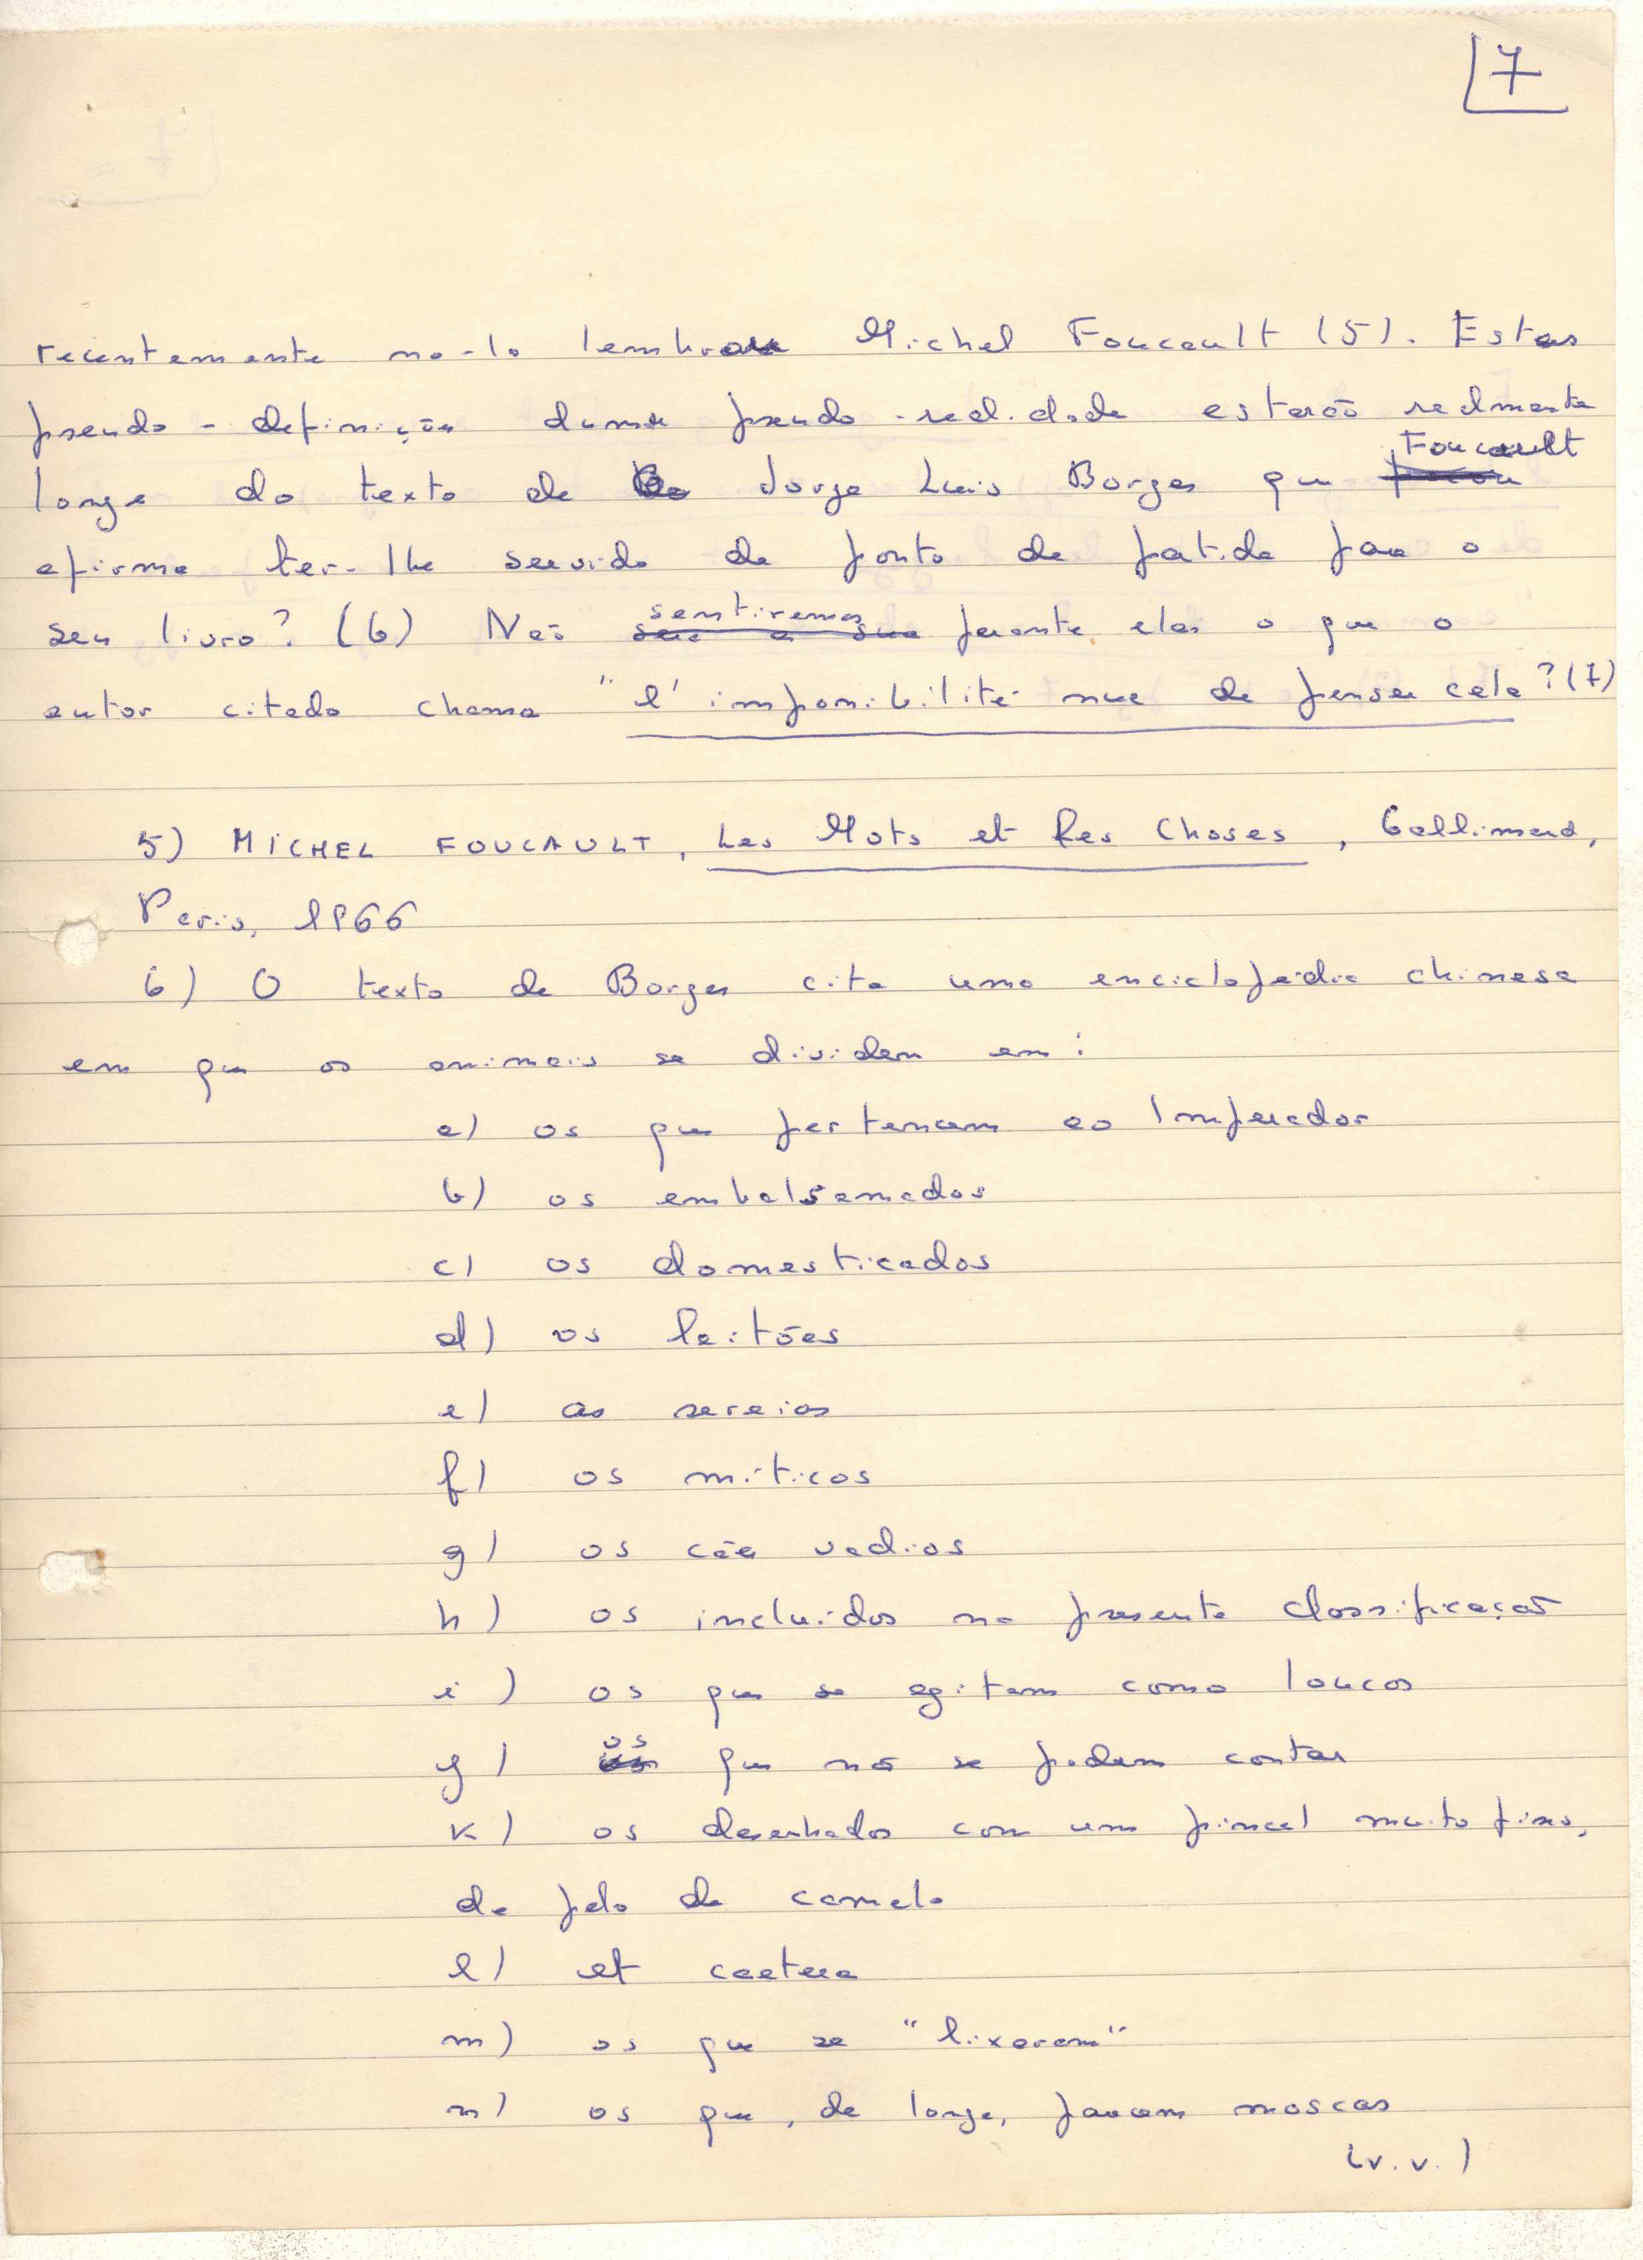 7
recentemente no-lo lembrou Michel Foucault (5). Estas
pseudo-definições duma pseudo-realidade estarão realmente
longe do texto de Jorge Luis Borges que Foucault
afirma ter-lhe servido de ponto de partida para o
seu livro? (6) Não sentiremos perante elas o que o
autor citado chama "l'impossibilité nue de penser cela? (7)
5) MICHEL FOUCAULT, Les Mots et les Choses, Gallimard,
Paris, 1966
6) O texto de Borges cita uma enciclopédia chinesa
em que os animais se dividem em:
a) os que pertencem ao Imperador
b) os embalsamados
c) os domesticados
d) os leitões
e) as sereias
f) os míticos
g) os cães vadios
h) os incluídos na presente classificação
i) os que se agitam como loucos
j) os que não se podem contar
k) os desenhados com um pincel muito fino,
de pelo de camelo
l) et caetera
m) os que se "lixaram"
n) os que, de longe, parecem moscas
(v. v.)